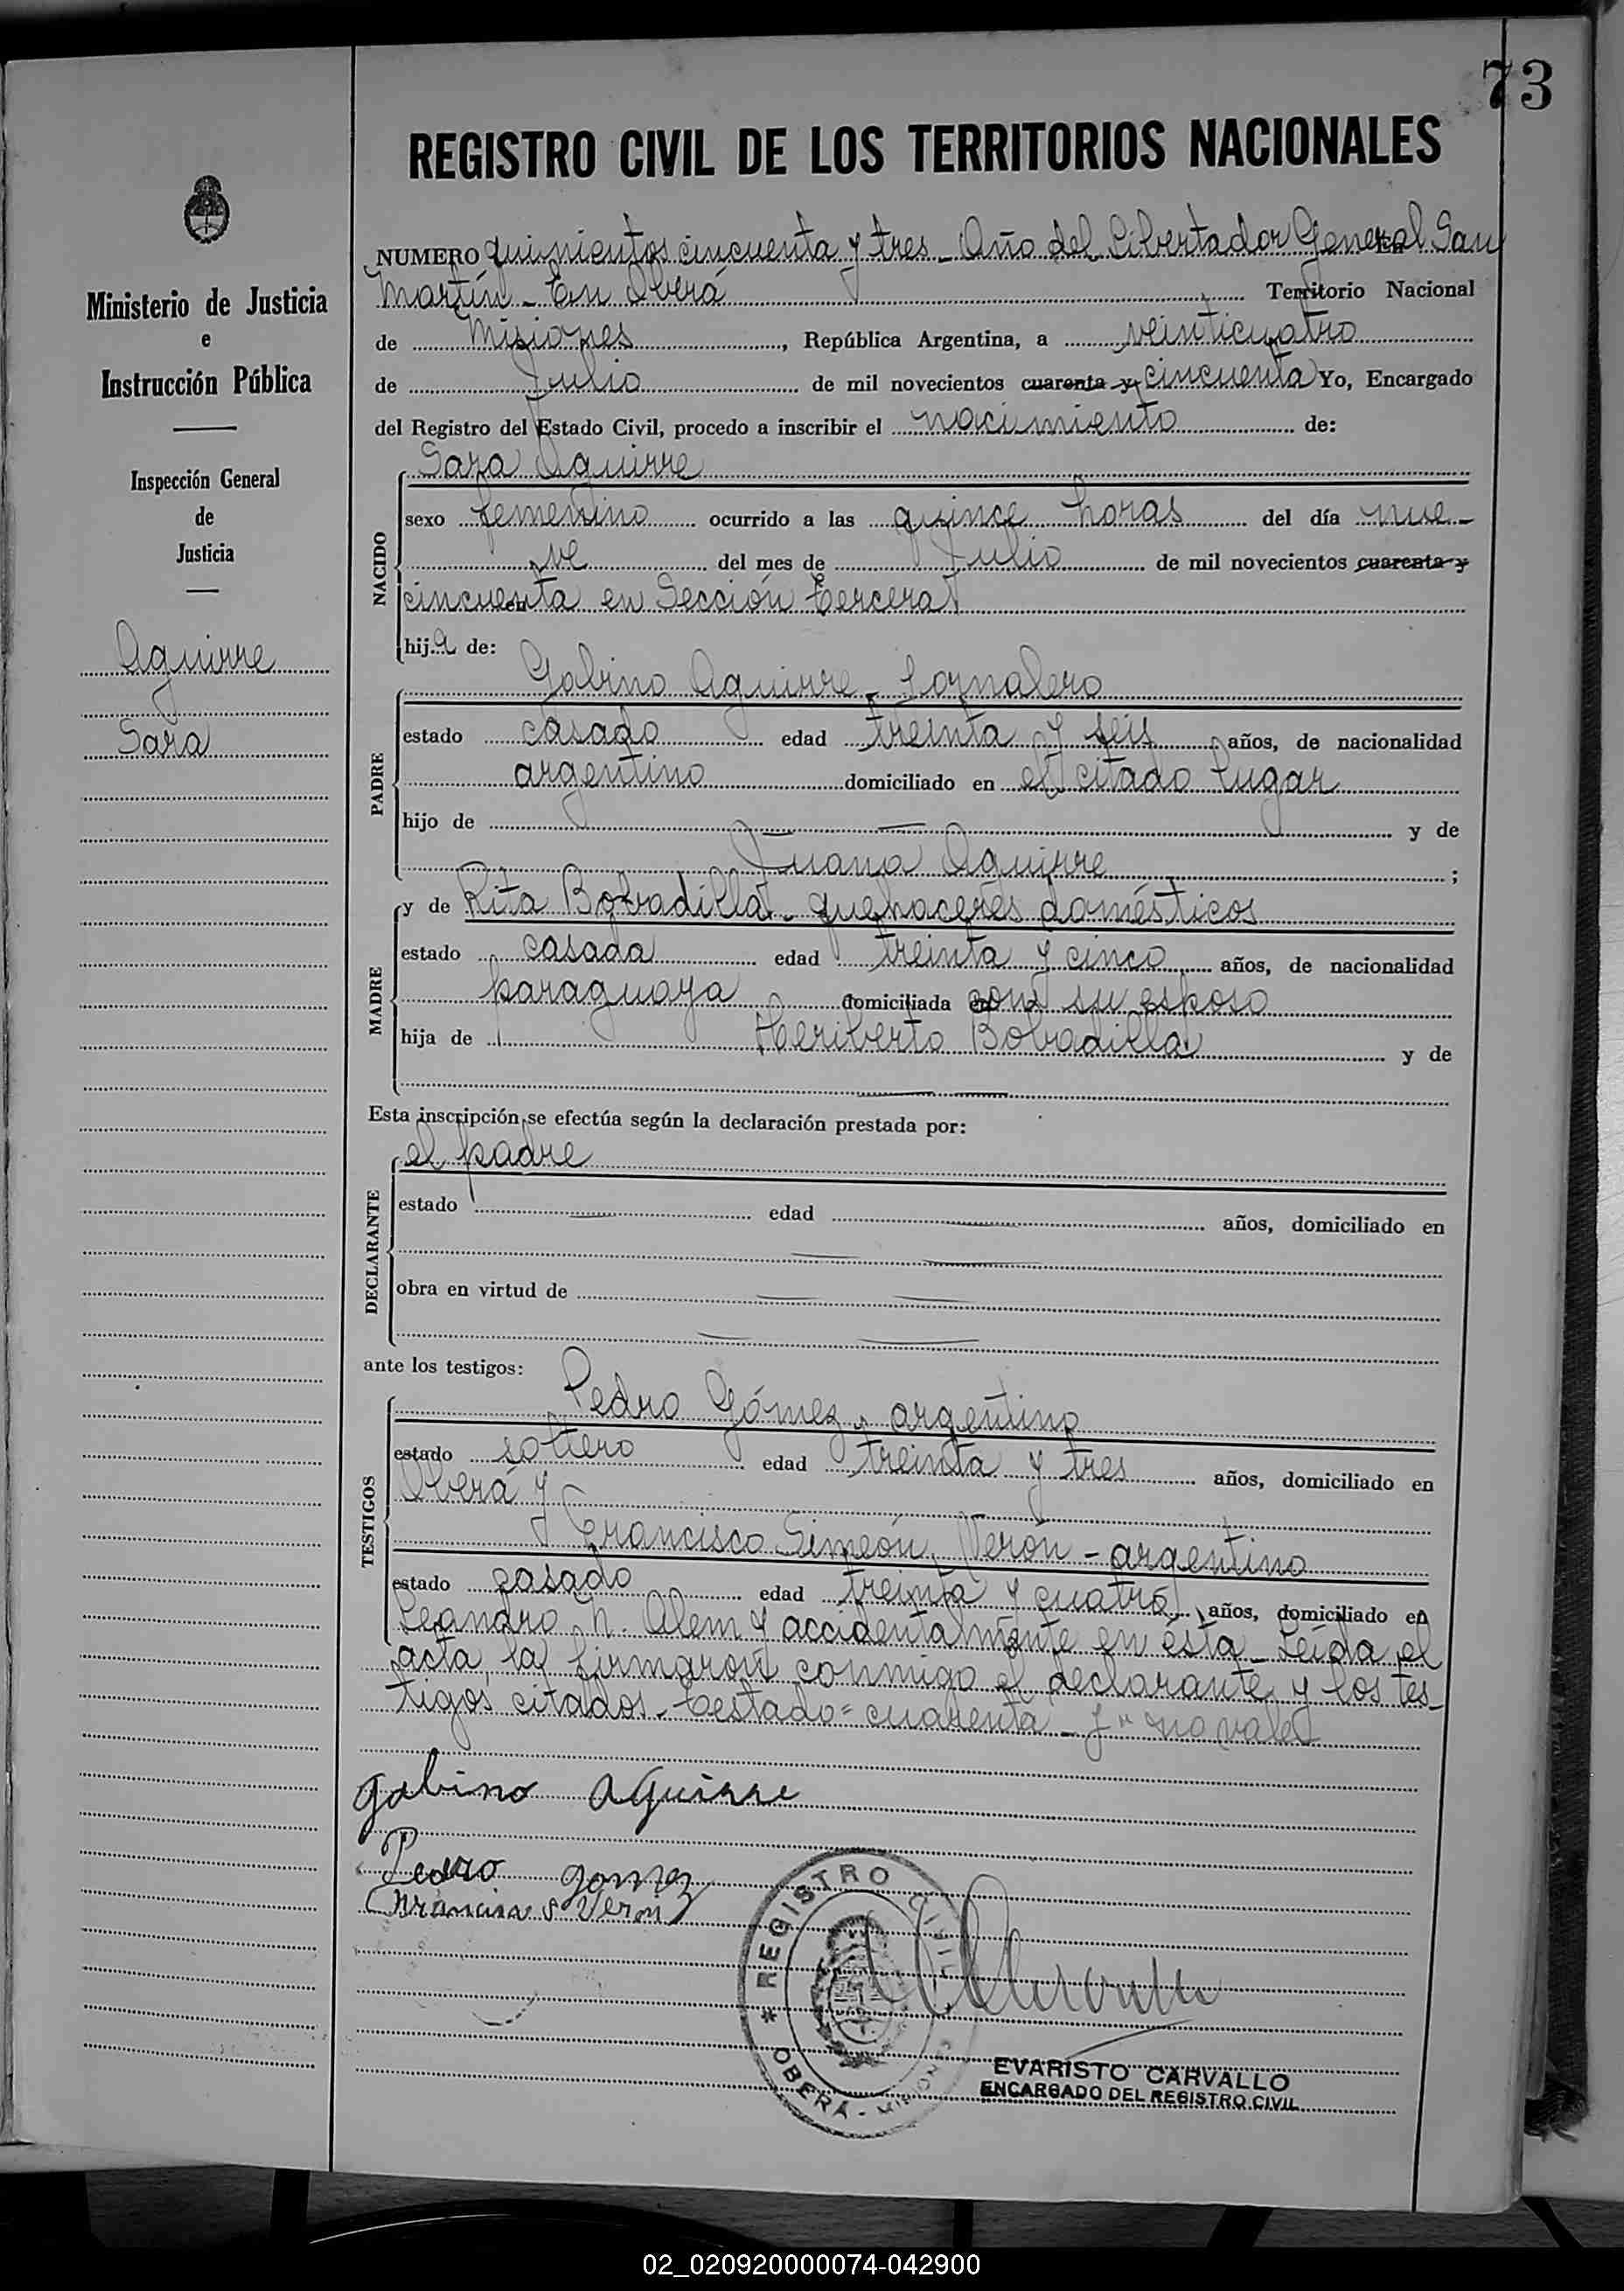 73
REGISTRO CIVIL DE LOS TERRITORIOS NACIONALES
Ministerio de Justicia
e
Instrucción Pública
Inspección General
de
Justicia
Aguirre
Sara
NUMERO quinientos cincuenta y tres - Año del Libertador General San
Martín - En Oberá Territorio Nacional
de Misiones, República Argentina, a veinticuatro
de Julio de mil novecientos cuarenta y cincuenta Yo, Encargado
del Registro del Estado Civil, procedo a inscribir el nacimiento de:
Sara Aguirre
NACIDO
sexo femenino ocurrido a las quince horas del día nue-
ve del mes de Julio de mil novecientos cuarenta y
cincuenta en Sección tercera
hija de:
Gabino Aguirre - Jornalero
PADRE
estado casado edad treinta y seis años, de nacionalidad
argentino domiciliado en el citado lugar
hijo de y de
Juana Aguirre ;
y de Rita Bobadilla - quehaceres domésticos
MADRE
estado casada edad treinta y cinco años, de nacionalidad
paraguaya domiciliada con su esposo
hija de Heriberto Bobadilla y de
Esta inscripción se efectúa según la declaración prestada por:
el padre
DECLARANTE
estado edad años, domiciliado en
obra en virtud de
ante los testigos:
Pedro Gómez, argentino
TESTIGOS
estado soltero edad treinta y tres años, domiciliado en
Oberá y
Francisco Simeón Verón - argentino
estado casado edad treinta y cuatro años, domiciliado en
Leandro N. Alem y accidentalmente en ésta - Leída el
acta, la firmaron conmigo el declarante y los tes-
tigos citados - testado = cuarenta - y " no vale
Gabino Aguirre
Pedro Gomez
Francisco S Veron
REGISTRO CIVIL
OBERÁ - MISIONES
EVARISTO CARVALLO
ENCARGADO DEL REGISTRO CIVIL
02_020920000074-042900